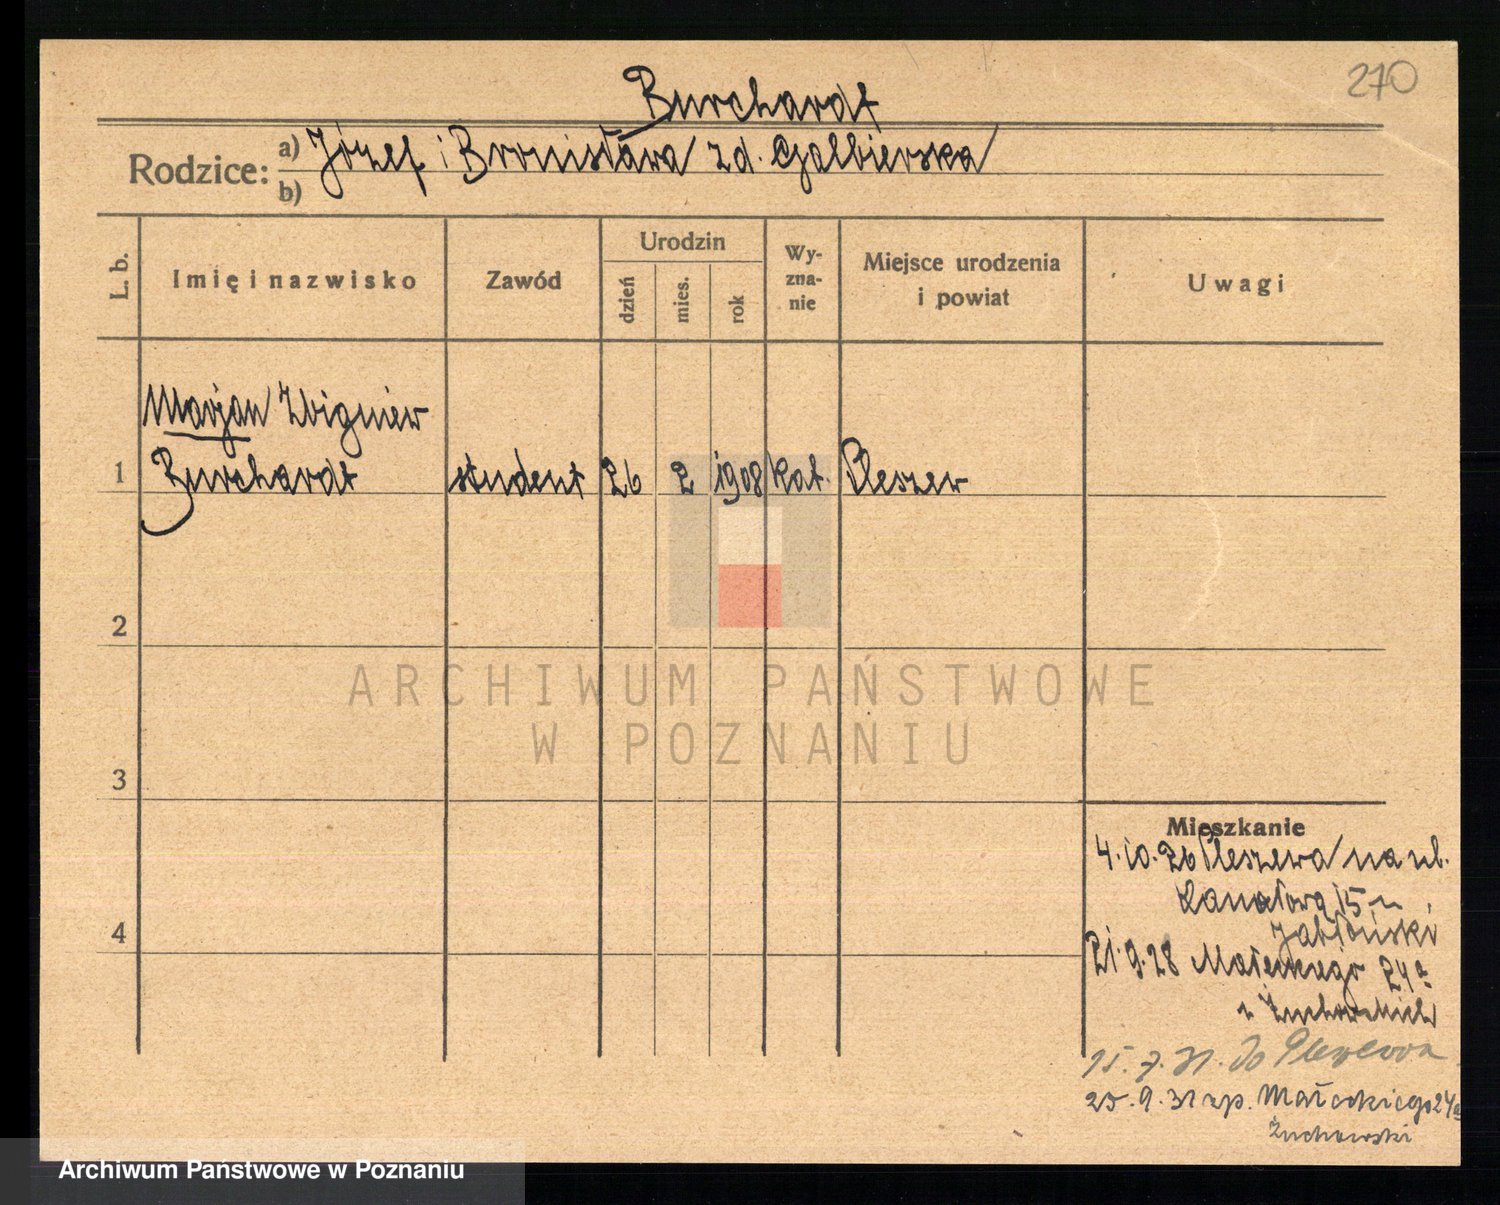 270
Burchardt
Rodzice: a) Józef i Bronisława zd. Galbierska
b)
L. b.
Imię i nazwisko
Zawód
Urodzin
dzień
mies.
rok
Wy-
zna-
nie
Miejsce urodzenia
i powiat
Uwagi
Marjan Zbigniew
1 Burchardt student 26 2 1908 kat. Pleszew
2
ARCHIWUM PAŃSTWOWE
W POZNANIU
3
Mieszkanie
4.10.26 Pleszewa na ul.
Kanałową 15 u
Jabłoński
4
21.9.28 Małeckiego 24a
u Żuchowskich
15.7.31. do Pleszewa
25.9.31 zp. Małeckiego 24a
Żuchowski
Archiwum Państwowe w Poznaniu